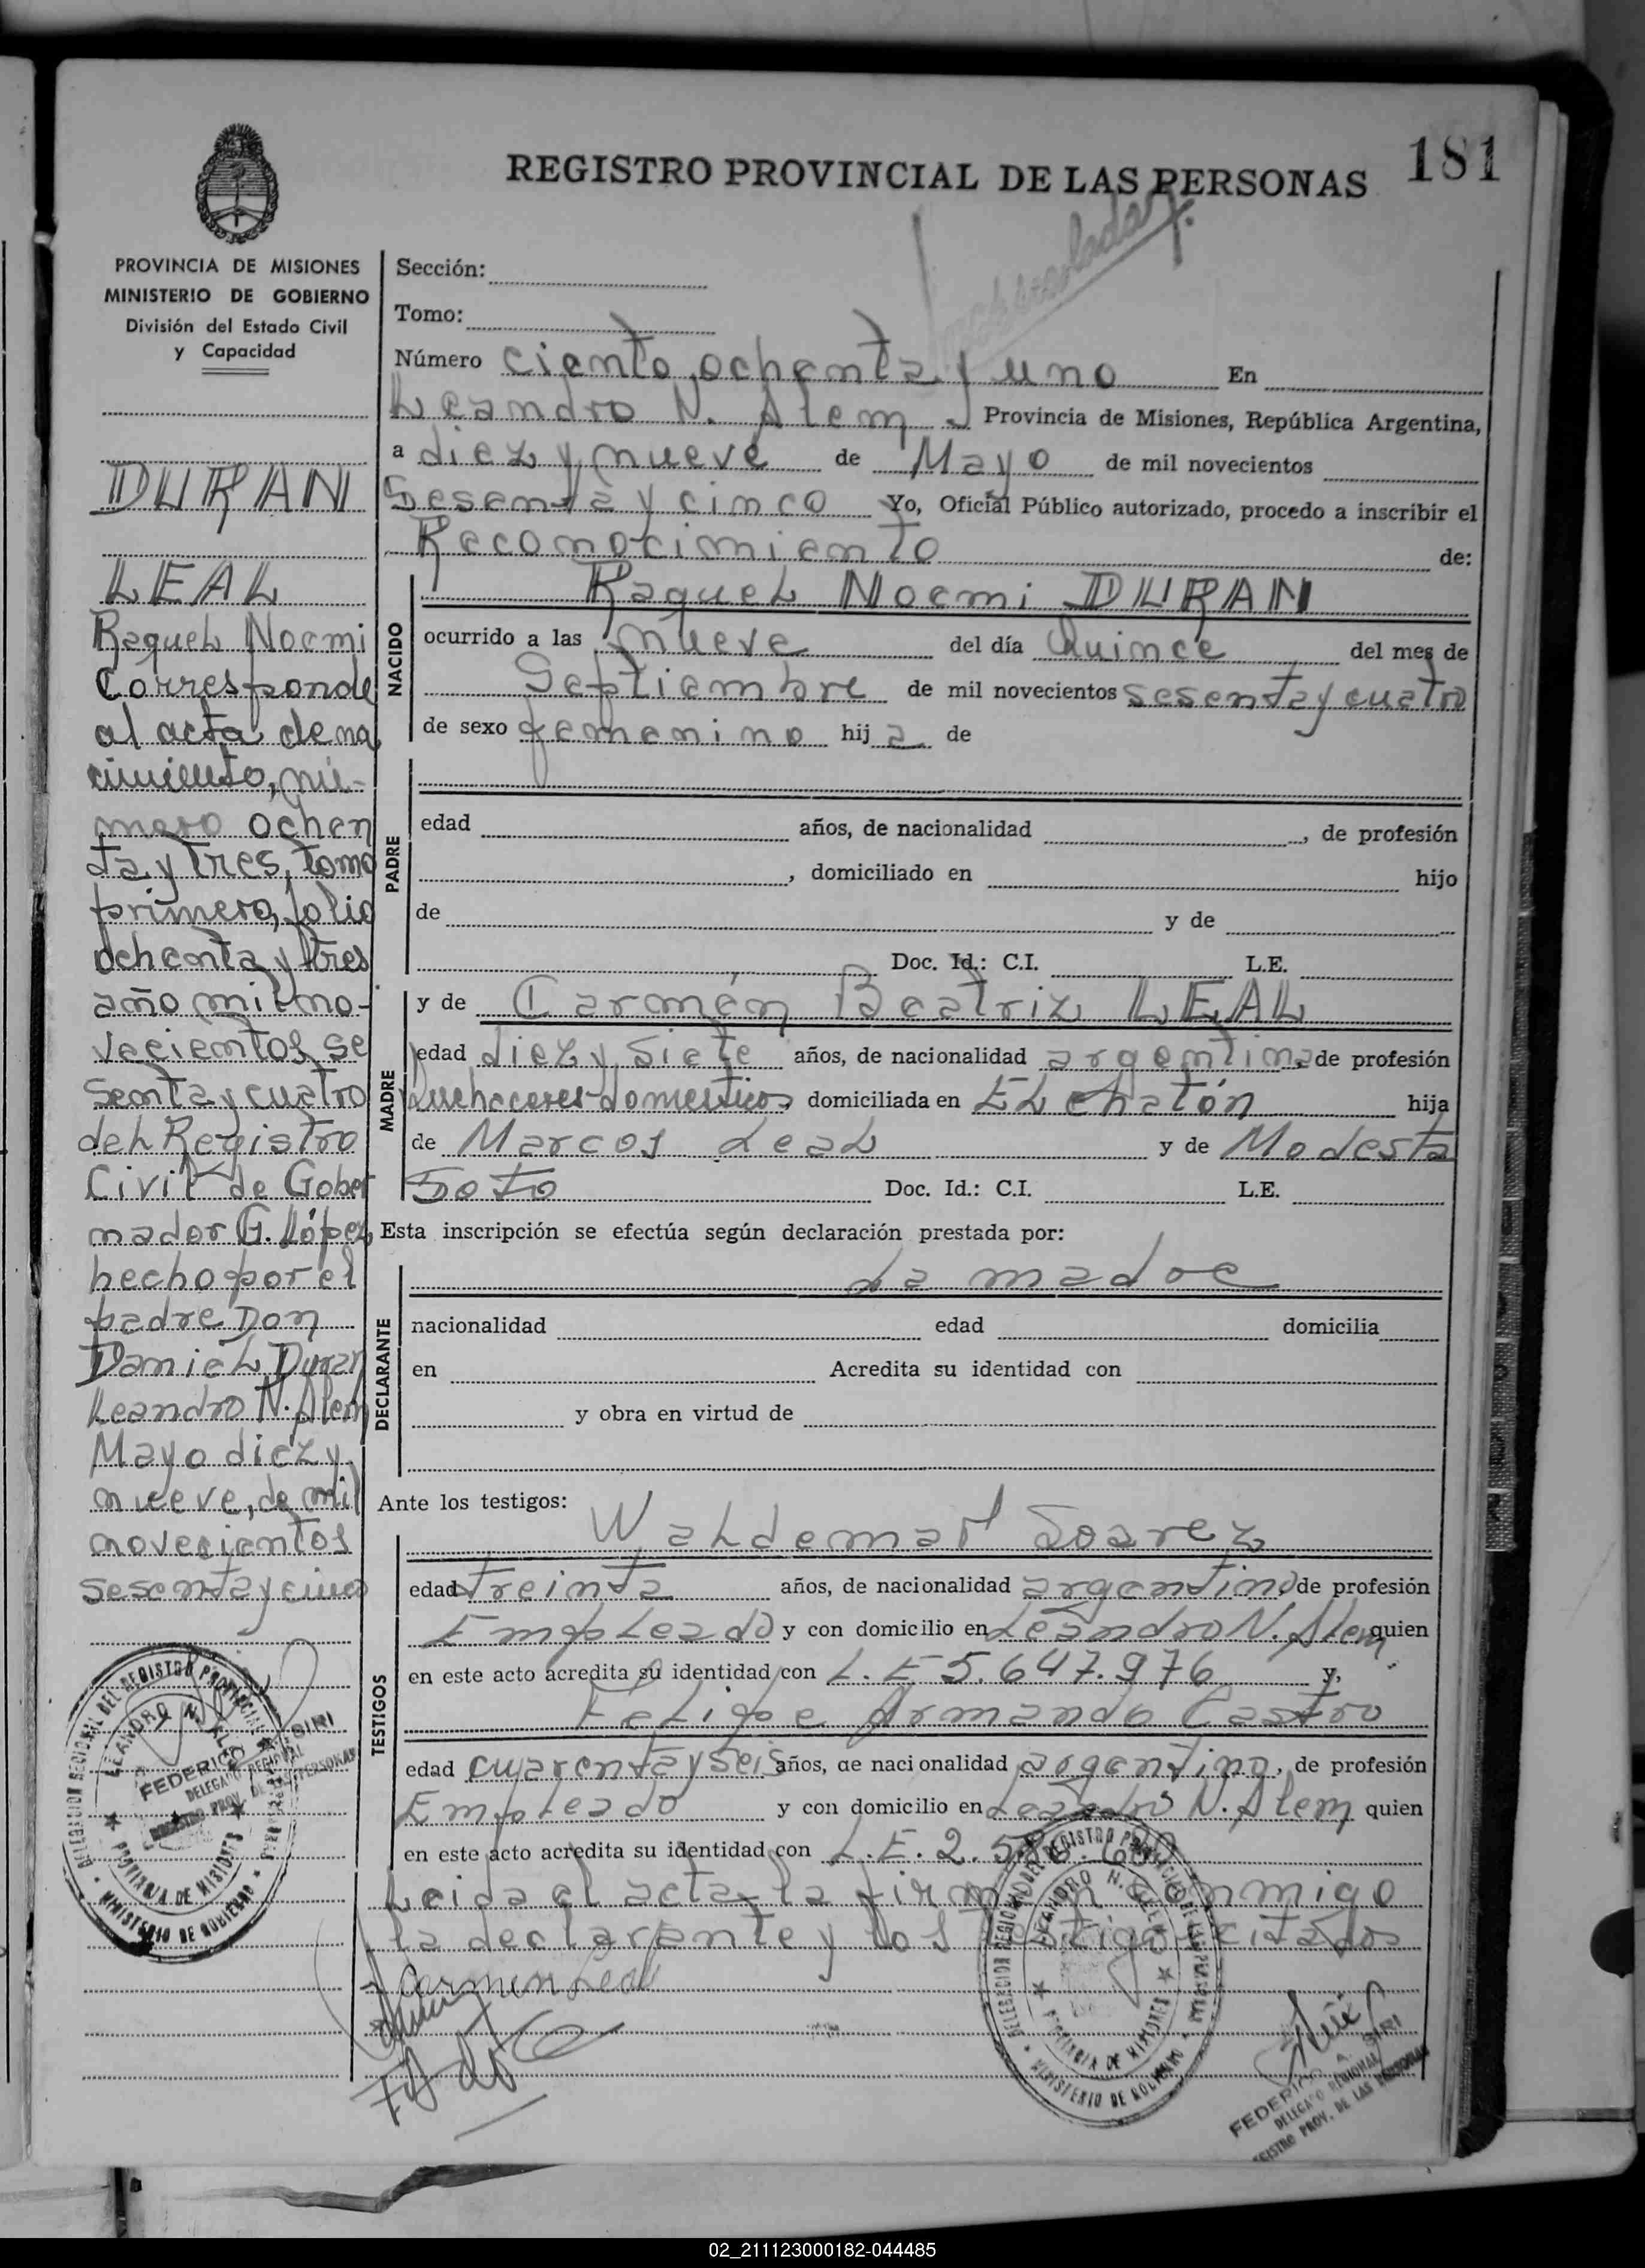 REGISTRO PROVINCIAL DE LAS PERSONAS 181
PROVINCIA DE MISIONES
MINISTERIO DE GOBIERNO
División del Estado Civil
y Capacidad
DURAN
LEAL
Raquel Noemi
Corresponde
al acta de na
cimiento, nú-
mero ochen
ta y tres, tomo
primero, folio
ochenta y tres
año mil no-
vecientos se
senta y cuatro
del Registro
Civil de Gober
nador G. López
hecho por el
padre Don
Daniel Duran
Leandro N. Alem
Mayo diez y
nueve, de mil
novecientos
sesenta y cinco
Sección:
Tomo:
Número ciento ochenta y uno En
Leandro N. Alem Provincia de Misiones, República Argentina,
a diez y nueve de Mayo de mil novecientos
Sesenta y cinco Yo, Oficial Público autorizado, procedo a inscribir el
Reconocimiento de:
NACIDO
Raquel Noemi DURAN
ocurrido a las nueve del día Quince del mes de
Septiembre de mil novecientos sesenta y cuatro
de sexo femenino hija de
PADRE
edad años, de nacionalidad , de profesión
, domiciliado en hijo
de y de
Doc. Id.: C.I. L.E.
MADRE
y de Carmen Beatriz LEAL
edad diez y siete años, de nacionalidad argentina de profesión
Quehaceres domesticos, domiciliada en EL chatón hija
de Marcos Leal y de Modesta
Soto Doc. Id.: C.I. L.E.
Esta inscripción se efectúa según declaración prestada por:
DECLARANTE
La madre
nacionalidad edad domicilia
en Acredita su identidad con
y obra en virtud de
Ante los testigos:
TESTIGOS
Waldemar Soarez
edad treinta años, de nacionalidad argentino de profesión
Empleado y con domicilio en Leandro N. Alem quien
en este acto acredita su identidad con L.E 5.647.976 y,
Felipe Armando Castro
edad cuarenta y seis años, de nacionalidad argentino, de profesión
Empleado y con domicilio en Leandro N. Alem quien
en este acto acredita su identidad con L.E. 2.
Leida el acta la firman conmigo
la declarante y los testigos citados
Carmen Leal
DELEGACION REGIONAL DEL REGISTRO PROVINCIAL DE LAS PERSONAS
LEANDRO N. ALEM
PROVINCIA DE MISIONES
MINISTERIO DE GOBIERNO
FEDERICO A. SIRI
DELEGADO REGIONAL
REGISTRO PROV. DE LAS PERSONAS
DELEGACION REGIONAL DEL REGISTRO PROVINCIAL DE LAS PERSONAS
LEANDRO N. ALEM
PROVINCIA DE MISIONES
MINISTERIO DE GOBIERNO
FEDERICO A. SIRI
DELEGADO REGIONAL
REGISTRO PROV. DE LAS PERSONAS
02_211123000182-044485